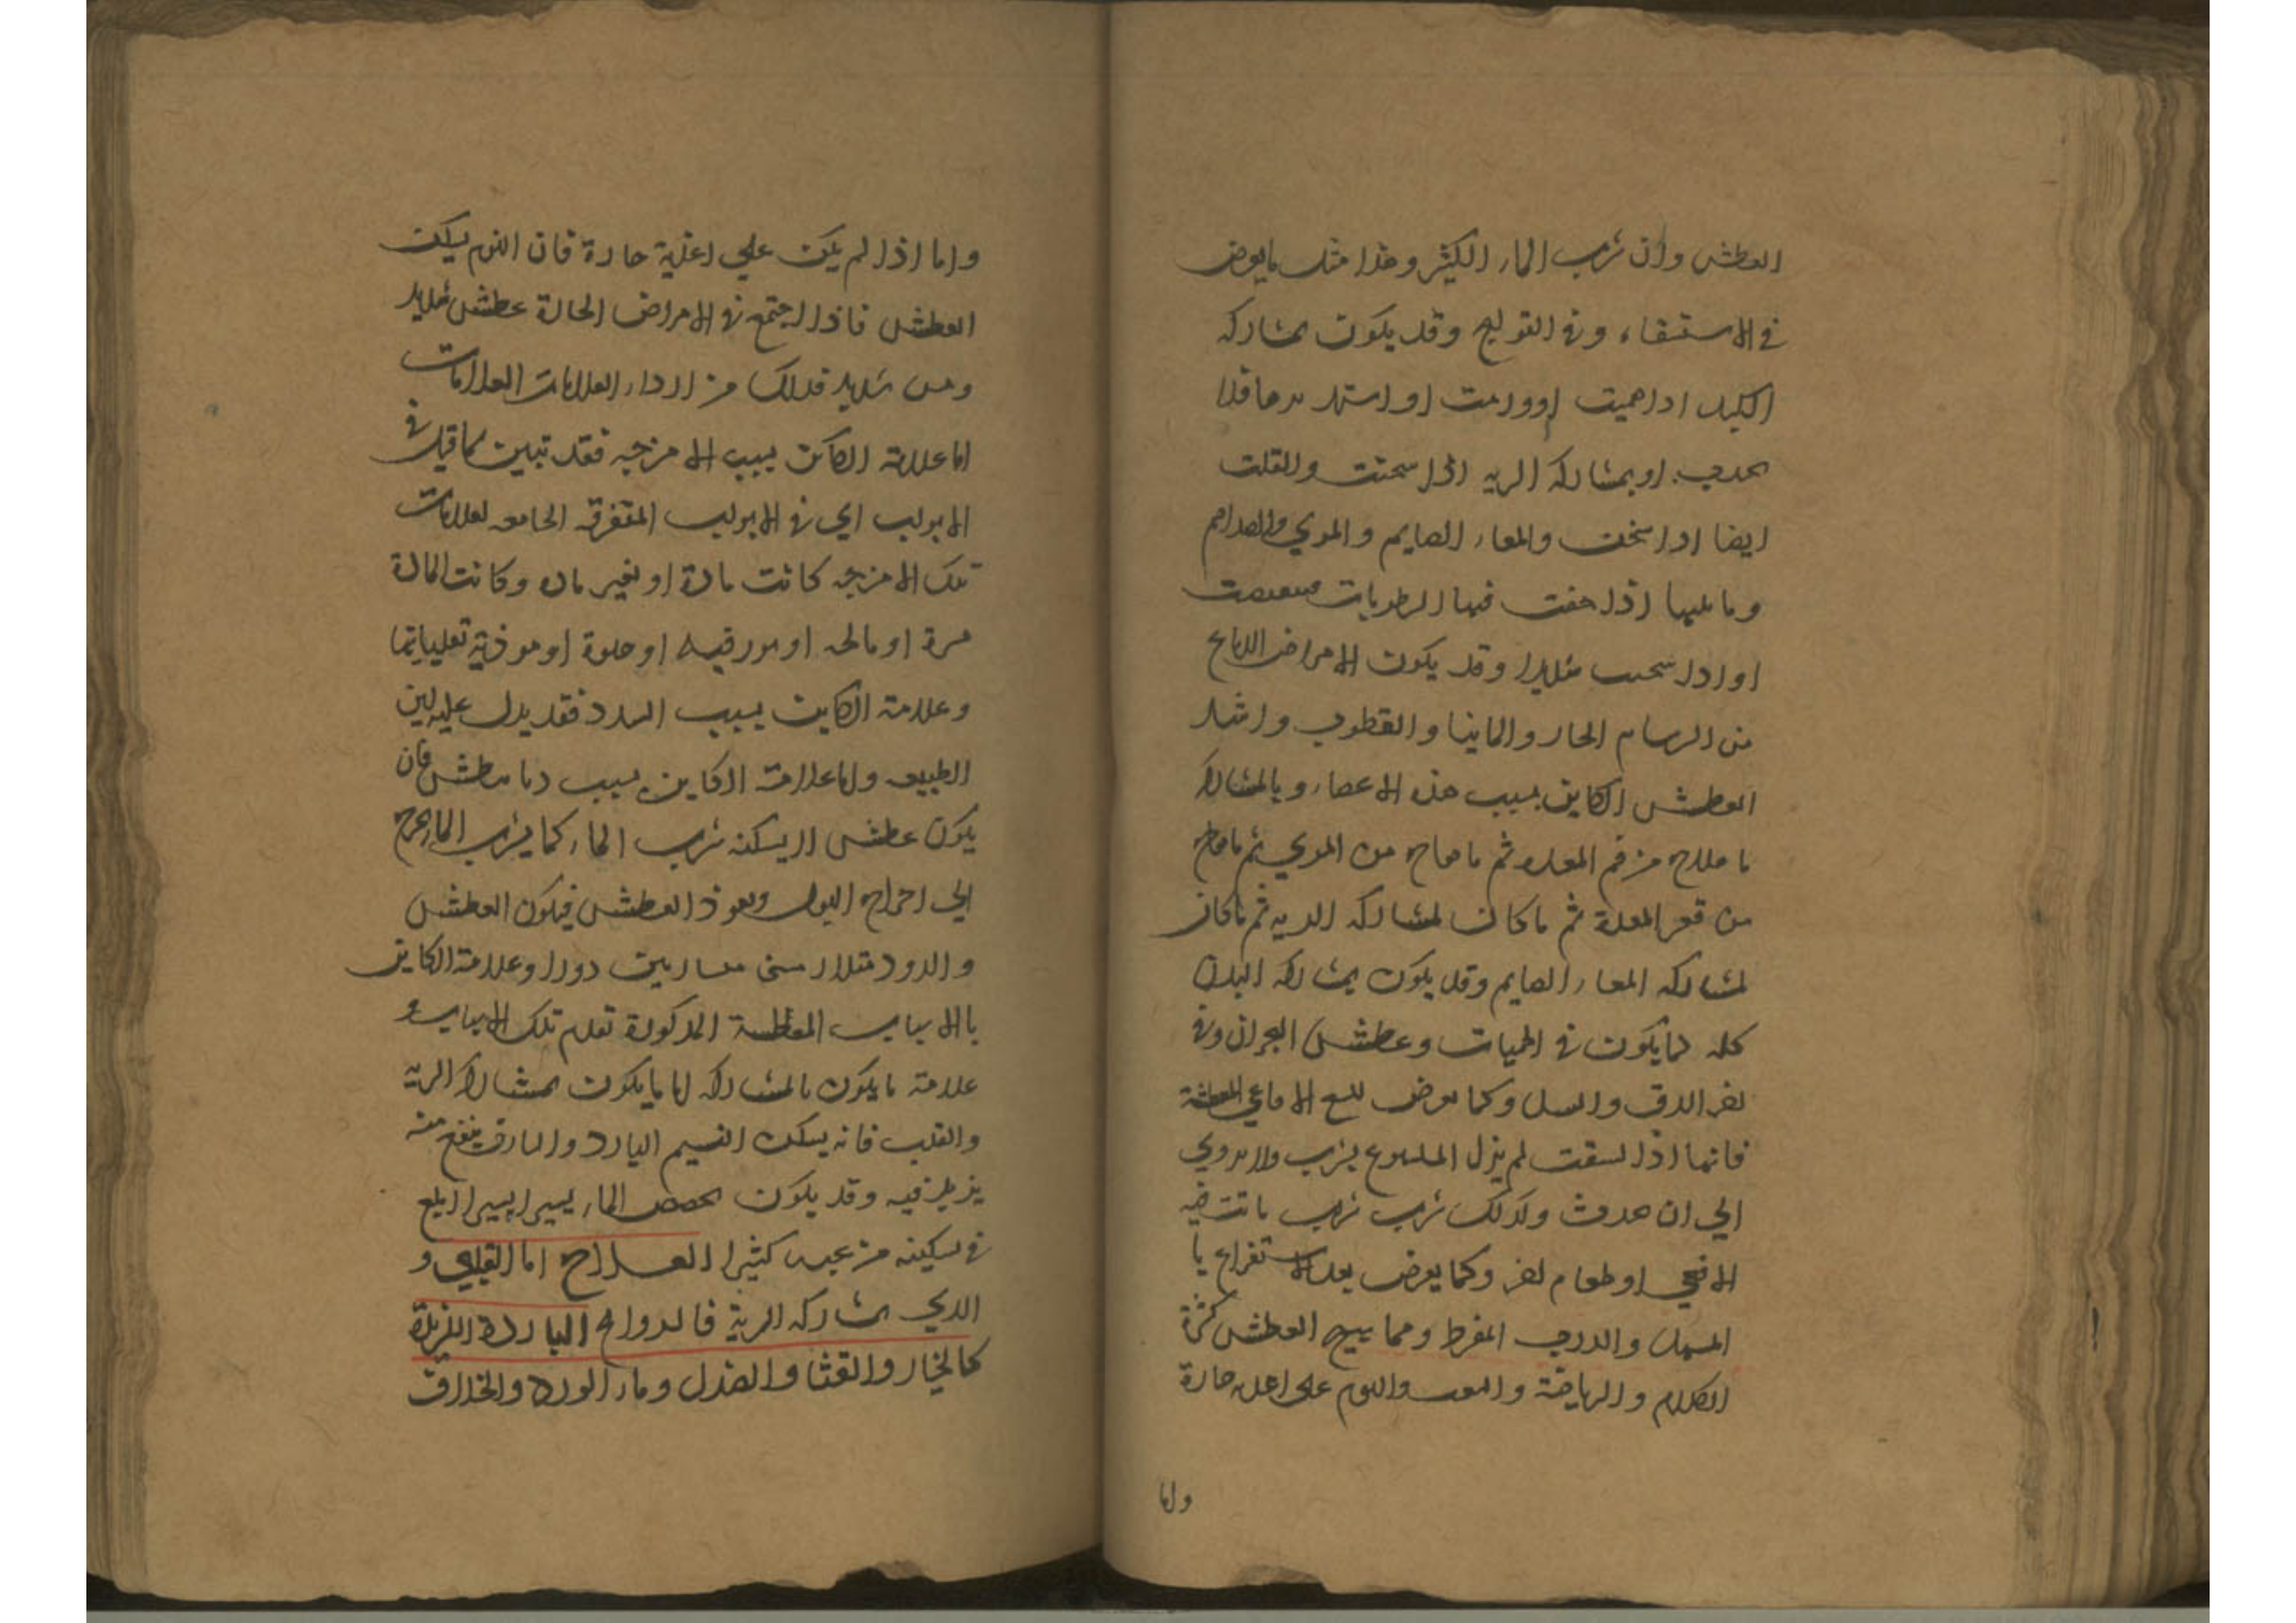 العطش وان شرب الماء الكثير وهذا مثل ما يعرض
في الاستسقاء وفي القولنج وقد يكون بمشاركة
الكبد اذا حميت او ورمت او اشتد بردها فلا
تجذب او بمشاركة الريه اذا سخنت والقلب
ايضا اذا سخن والمعاء الصايم والمري والصدام
وما يليها اذا جفت فيها الرطوبات
او اذا سخنت شديدا وقد يكون الامراض الدماغ
من السرسام الحار والمانيا والقطرب واشد
العطش الكاين بسبب هذه الاعضاء وبالمشاركة
ما هاج من فم المعدة ثم ما هاج من المري ثم ما هاج
من قعر المعدة ثم ما كان لمشاركة الريه ثم ما كان
لمشاركة المعاء الصايم وقد يكون بمشاركة البدن
كله كما يكون في الحميات وعطش البحران وفي
اخر الدق والسل وكما يعرض للسع الافاعي المعطشة
فانها اذا لسعت لم يزل الملسوع يشرب ولا يروي
الي ان يموت وكذلك شرب شراب
الافعي او طعام اخر وكما يعرض بعد الاستفراغ با
المسهل والذرب المفرط ومما يهيج العطش كثرة
الكلام والرياضة والتعب والنوم على اغذيه حارة
واما
واما اذا لم يكن علي اغذية حارة فان النوم يسكن
العطش فاذا اجتمع في الامراض الحادة عطش شديد
ويبس شديد فذلك من اردا العلامات العلامات
اما علامة الكاين بسبب الامزجه فقد تبين كما قيل في
الابواب اي في الابواب المتفرقه الجامعه لعلامات
تلك الامزجه كانت مادة او بغير ماده وكانت المادة
مرة او مالحه او بورقيه او حلوة او موذية
وعلامة الكاين بسبب السدد فقد يدل عليه لين
الطبيعه واما علامة الكاين بسبب ديانيطش فان
يكون عطش لا يسكنه شرب الماء كما يشرب الماء يحوج
الي اخراج البول ويعود العطش فيكون العطش
والدرور متساويين دورا وعلامة الكاين
بالاسباب المعطشة المذكورة تقدم تلك الاسباب و
علامة ما يكون بالمشاركه اما ما يكون بمشاركة الريه
والقلب فانه يسكنه النسيم البارد والبارق ينفع منه
يزيد فيه وقد يكون تمصص الماء يسيرا يسيرا ابلغ
في تسكينه من عبه كثيرا العلاج اما القلبي و
الذي بمشاركة الرية فالروايح الباردة اللذيذة
كالخيار والقثا والصندل وماء الورد والخلاف